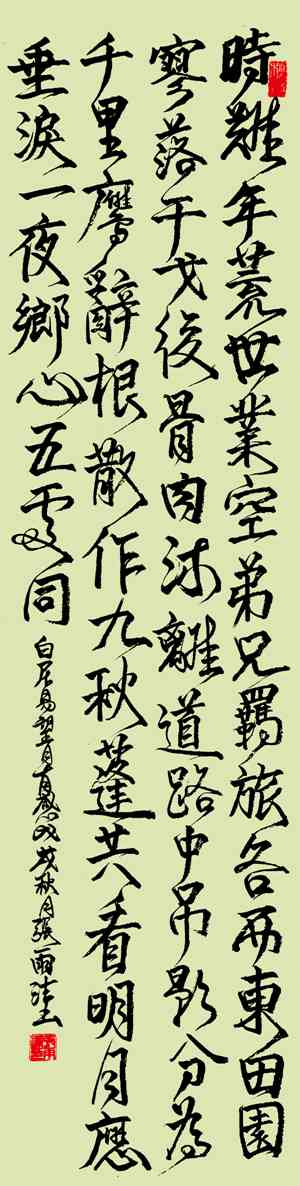 時難年荒世業空弟兄羈旅各西東田園
寥落干戈後骨肉流離道路中吊影分為
千里鴈辭根散作九秋蓬共看明月應
垂淚一夜鄉心五處同
白居易望月有感 戌秋月張雨